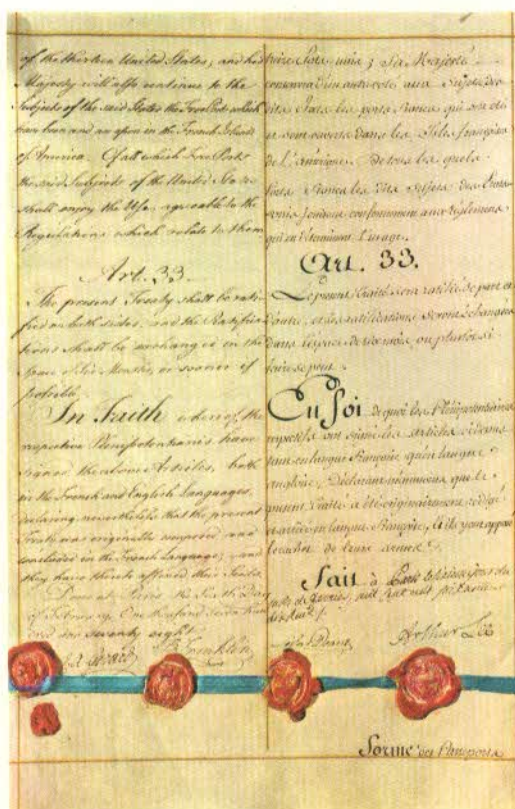 of the thirteen United States; and his
Majesty will also continue to the
Subjects of the said States the Free Ports which
have been and are open in the French Islands
of America. Of all which Free Ports
the said Subjects of the United States
shall enjoy the Use, agreable to the
Regulations which relate to them.
Art. 33.
The present Treaty shall be rati-
fied on both sides, and the Ratifica-
tions shall be exchanged in the
space of Six Months, or sooner if
possible.
In Faith whereof the
respective Plenipotentiaries have
signed the above Articles, both
in the French and English Languages,
declaring nevertheless that the present
Treaty was originally composed and
concluded in the French Language; and
they have thereto affixed their Seals.
Done at Paris the Sixth Day
of February, One thousand Seven hun-
dred and seventy eight.
Gerard
B Franklin
treize Etats unis; Sa Majesté
conservera d'un autre coté aux Sujets des
dits Etats les ports francs qui ont eté
et sont ouverts dans les Isles françoises
de L'amérique. De tous les quels
Ports francs les dits sujets des Etats
unis jouiront conformement aux Reglemens
qui en déterminent L'usage.
Art. 33.
Le présent traité sera ratifié de part et
d'autre, et les ratifications seront échangées
dans l'espace de six mois, ou plustot si
faire se peut.
En foi de quoi les Plénipotentiaires
respectifs ont signé les articles ci dessus
tant en langue Françoise qu'en langue
angloise, Déclarant néanmoins que le
present Traité a été originairement rédigé
et arrêté en langue Françoise, et ils y ont apposé
le cachet de leurs armes.
Fait à Paris le sixieme jour du
mois de fevrier, mil sept cent soixante
dix huit.
Silas Deane
Arthur Lee
Forme des Passeports